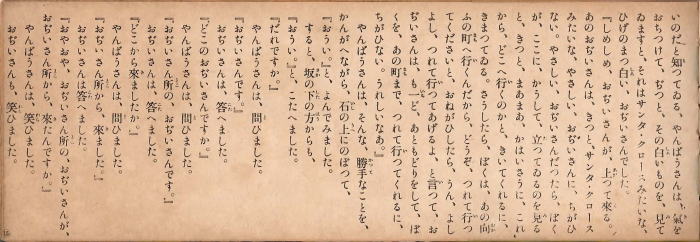 いのだと知つてゐる、やんぼうさんは、氣を
おちつけて、ぢつと、その白いものを、見て
ゐますと、それはサンタ・クロースみたいな、
ひげのまつ白い、おぢいさんでした。
『しめしめ、おぢいさんが、上つて來る。
あのおぢいさんは、きつと、サンタ・クロース
みたいな、やさしい、おぢいさんに、ちがひ
ない。やさしい、おぢいさんだつたら、ぼく
が、ここに、かうして、立つてゐるのを見る
と、きつと、まあまあ、かはいさうに、これ
から、どこへ行くのかと、きいてくれるに、
きまつてゐる。さうしたら、ぼくは、あの向
ふの町へ行くんだから、どうぞ、つれて行つ
てくださいと、おねがひしたら、うん、よし
よし、つれて行つてあげるよ、と言つて、お
ぢいさんは、も一ど、あともどりをして、ぼ
くを、あの町まで、つれて行つてくれるに、
ちがひない。うれしいなあ。』
やんぼうさんは、そんな、勝手なことを、
かんがへながら、石の上にのぼつて、
『おうい。』と、よんでみました。
すると、坂の下の方からも、
『おうい。』と、こたへました。
『だれですか。』
やんぼうさんは、問ひました。
『おぢいさんです。』
おぢいさんは、答へました。
『どこのおぢいさんですか。』
やんぼうさんは、問ひました。
『おぢいさん所の、おぢいさんです。』
おぢいさんは、答へました。
『どこから來ましたか。』
やんぼうさんは、問ひました。
『おぢいさん所から、來ました。』
おぢいさんは答へました。
『おやおや、おぢいさん所の、おぢいさんが、
おぢいさん所から、來たんですか。』
やんぼうさんは、笑ひました。
おぢいさんも、笑ひました。